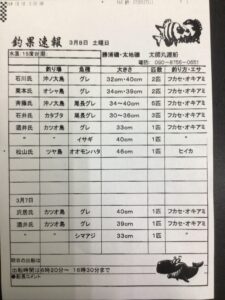 釣果速報 3月8日 土曜日
水温 15度台 勝浦磯・太地磯 太郎丸渡船
電話:090-8756-0651
氏名 場所 魚種 大きさ 匹数 釣り方・エサ
石川氏 沖ノ大島 グレ 32cm-40cm 2匹 フカセ・オキアミ
栗本氏 オシャ島 グレ 34-39cm 2匹 フカセ・オキアミ
斉藤氏 沖ノ大島 尾長グレ 34~40cm 5匹 フカセ・オキアミ
石井氏 カタブタ 尾長グレ 30~36cm 3匹 フカセ・オキアミ
酒井氏 カツオ島 グレ 33cm 1匹 フカセ・オキアミ
〃 〃 イサギ 40cm 1匹 〃
松山氏 ツヤ島 オオモンハタ 46cm 1匹 ヒイカ
3月7日
沢居氏 カツオ島 グレ 40cm 1匹 フカセ・オキアミ
酒井氏 カツオ島 グレ 39cm 1匹 フカセ・オキアミ
〃 〃 シマアジ 33cm 1匹 〃
明日の出船は
出船時間は6時20分~ 16時30分まで
●船長コメント